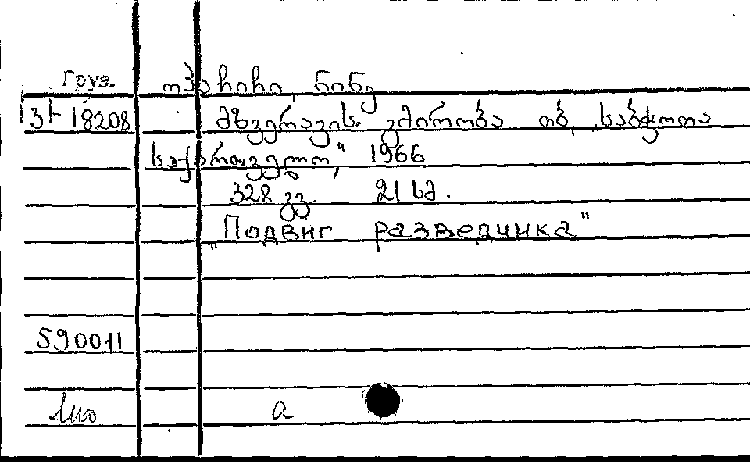 Груз.
3Г-18208
მზვერავის გმირობა თბ. „საბჭოთა
საქართველო," 1966
328 გვ. 21 სმ.
„Подвиг разведчика"
590011
а